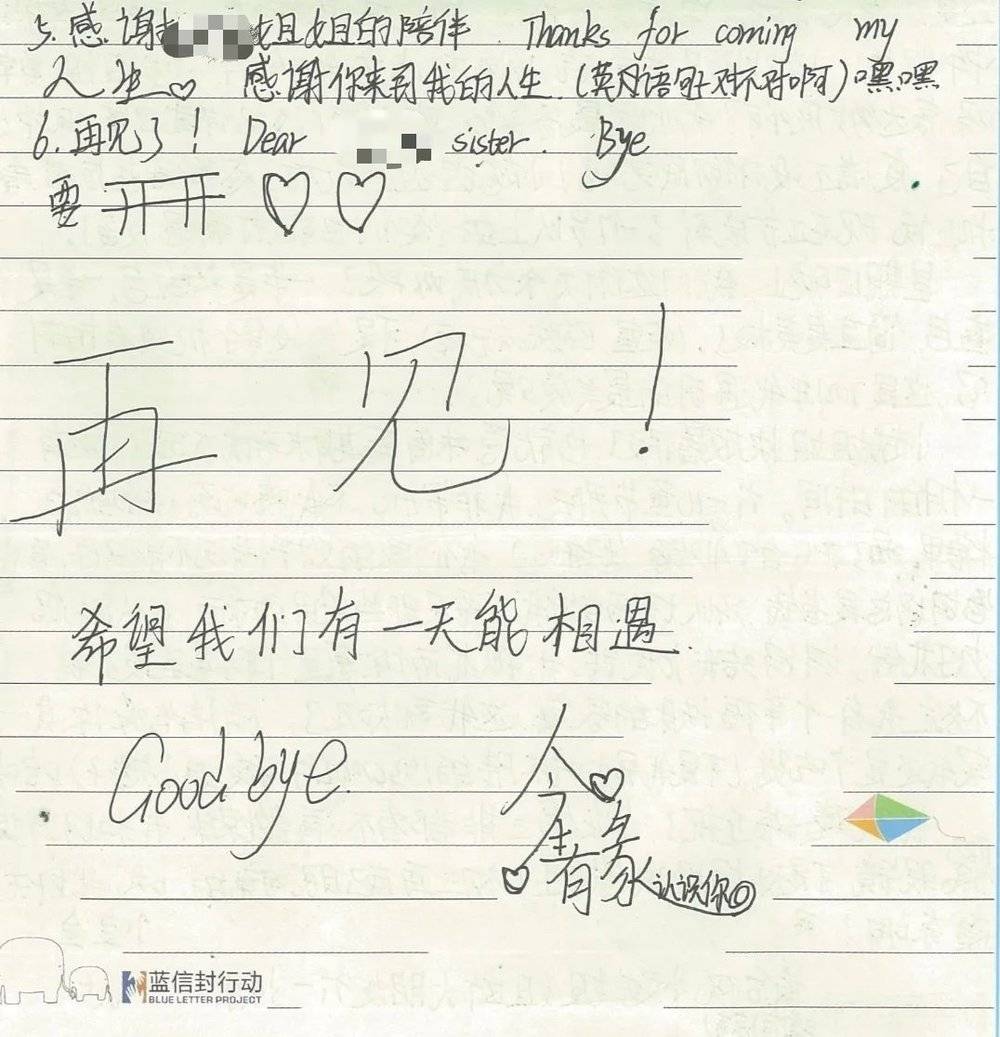 5.感谢 姐姐的陪伴 Thanks for coming my
人生♡ 感谢你来到我的人生.(英语句对不对啊)嘿嘿
6.再见了! Dear sister. Bye
要开开♡♡
再见!
希望我们有一天能相遇.
Goodbye.
今生有 认识你
蓝信封行动
BLUE LETTER PROJECT